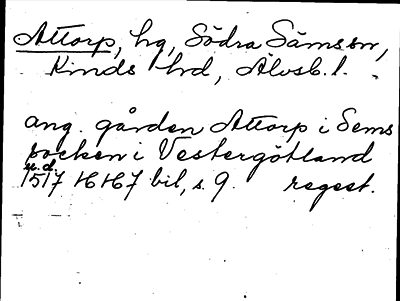 Attorp, hg, Södra Sämssn,
Kinds hd, Älvsb. l.
ang. gården Attorp i Sems
socken i Vestergötland
u.d.
1517 HH 67 bil, s. 9. regest.